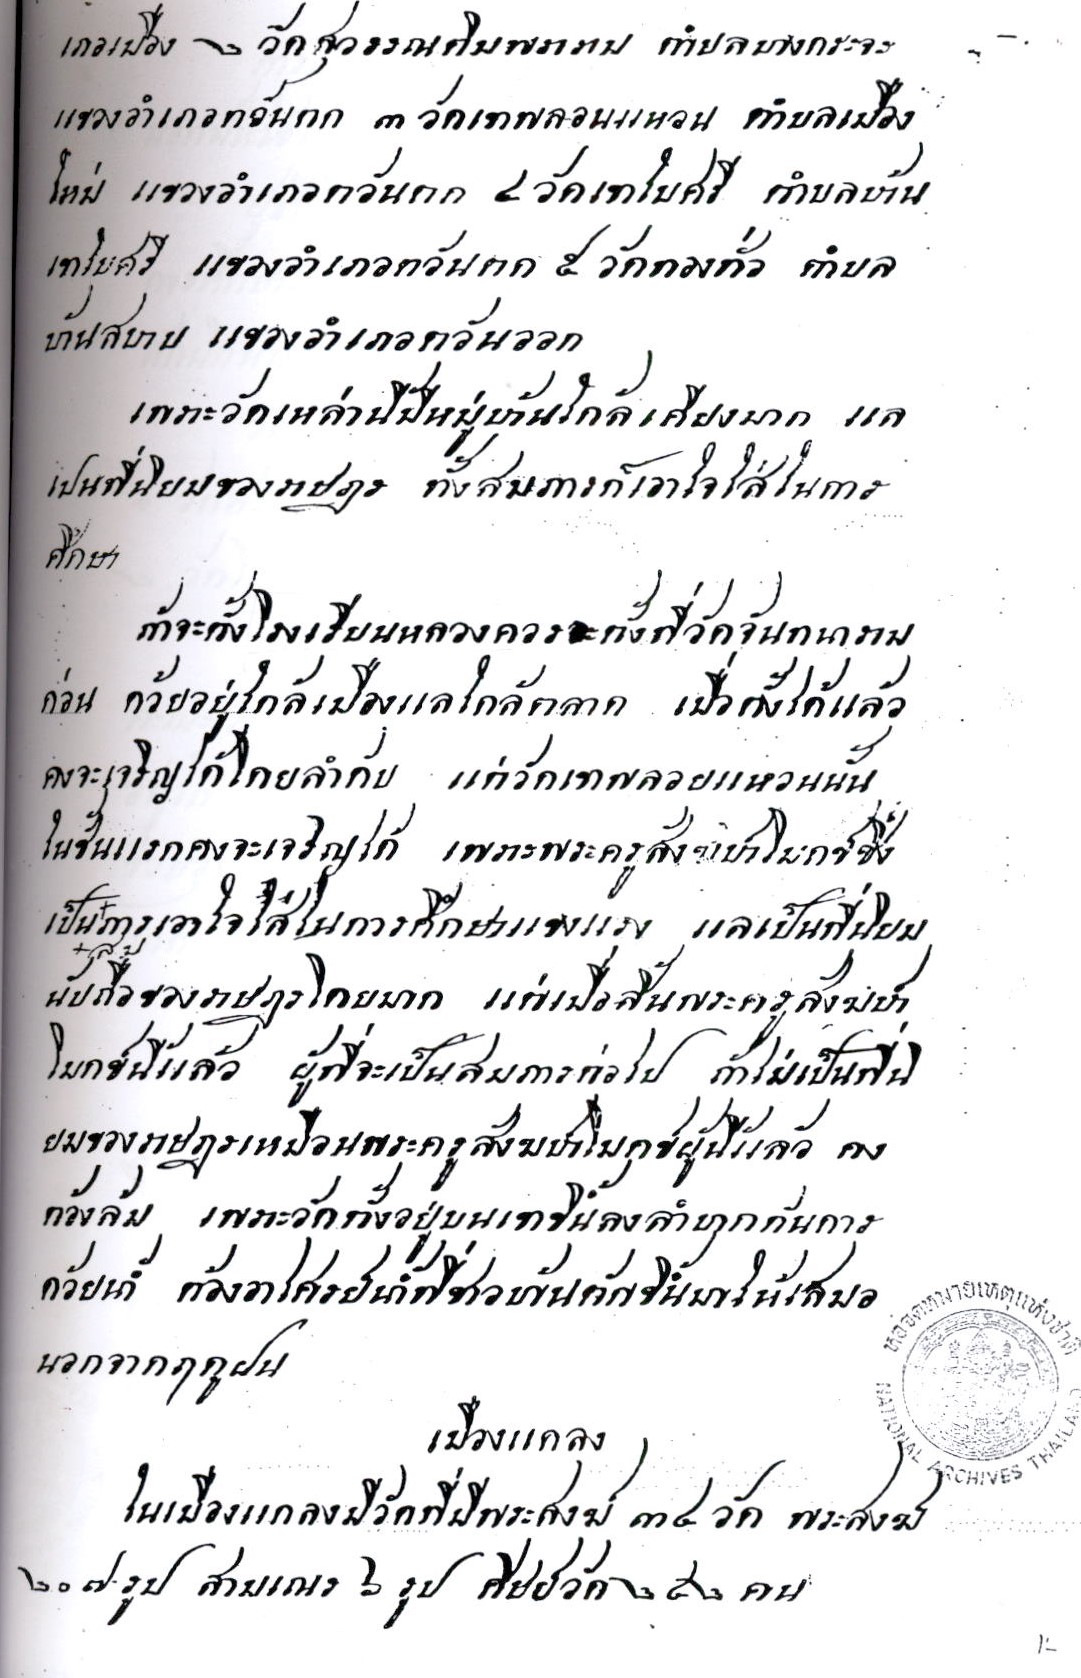 เภอเมือง ๒ วัดสุวรรณติมพาราม ตำบลบางกระจะ
แขวงอำเภอตวันตก ๓ วัดเทพลอนแหวน ตำบลเมือง
ใหม่ แขวงอำเภอตวันตก ๔ วัดเทโยศรี ตำบลบ้าน
เทโยศรี แขวงอำเภอตวันตก ๕ วัดทองทั่ว ตำบล
บ้านสบาบ แขวงอำเภอตวันออก
เพราะวัดเหล่านี้มีหมู่บ้านใกล้เคียงมาก แล
เปนที่นิยมของราษฎร ทั้งสมภารก็เอาใจใส่ในการ
ศึกษา
ถ้าจะตั้งโรงเรียนหลวงควรจะตั้งที่วัดจันทนาราม
ก่อน ด้วยอยู่ใกล้เมืองแลใกล้ตลาด เมื่อตั้งได้แล้ว
คงจะเจริญได้โดยลำดับ แต่วัดเทพลอยแหวนนั้น
ในชั้นแรกคงจะเจริญได้ เพราะพระครูสังฆปาโมกข์ซึ่ง
เป็นการเอาใจใส่ในการศึกษาแขงแรง แลเป็นที่นิยม
นับถือของราษฎรโดยมาก แต่เมื่อสิ้นพระครูสังฆปา
โมกข์นี้แล้ว ผู้ที่จะเป็นสมภารต่อไป ถ้าไม่เป็นที่นิ
ยมของราษฎรเหมือนพระครูสังฆปาโมกข์ผู้นี้แล้ว คง
ต้องล้ม เพราะวัดตั้งอยู่บนเขาขึ้นลงลำบากกันดาร
ด้วยน้ำ ต้องอาไศรยน้ำที่ชาวบ้านตักขึ้นมาให้เสมอ
นอกจากฤดูฝน
เมืองแกลง
ในเมืองแกลงมีวัดที่มีพระสงฆ์ ๓๔ วัด พระสงฆ์
๒๐๗ รูป สามเณร ๖ รูป ศิษย์วัด ๒๕๒ คน
หอจดหมายเหตุแห่งชาติ
NATIONAL ARCHIVES THAILAND